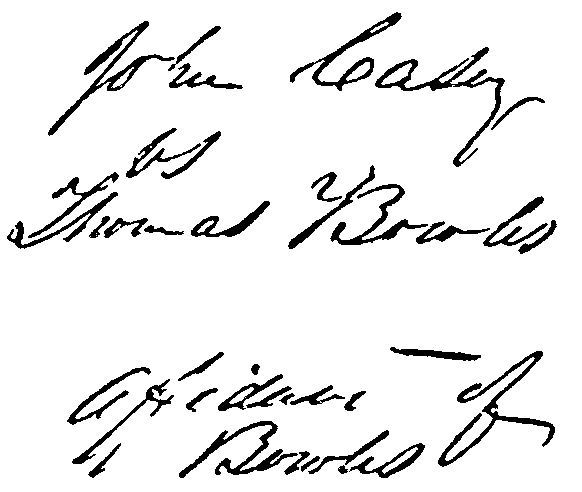 John Casey
vs
Thomas Bowles
Affidavit of
T Bowles